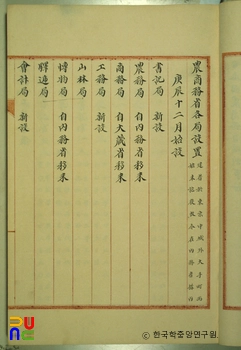 農商務省各局設置
庚辰十二月始設
書記局 新設
農務局 自內務省移來
商務局 自大藏省移來
工務局 新設
山林局
博物局 自內務省移來
驛遞局
會計局 新設
한국학중앙연구원